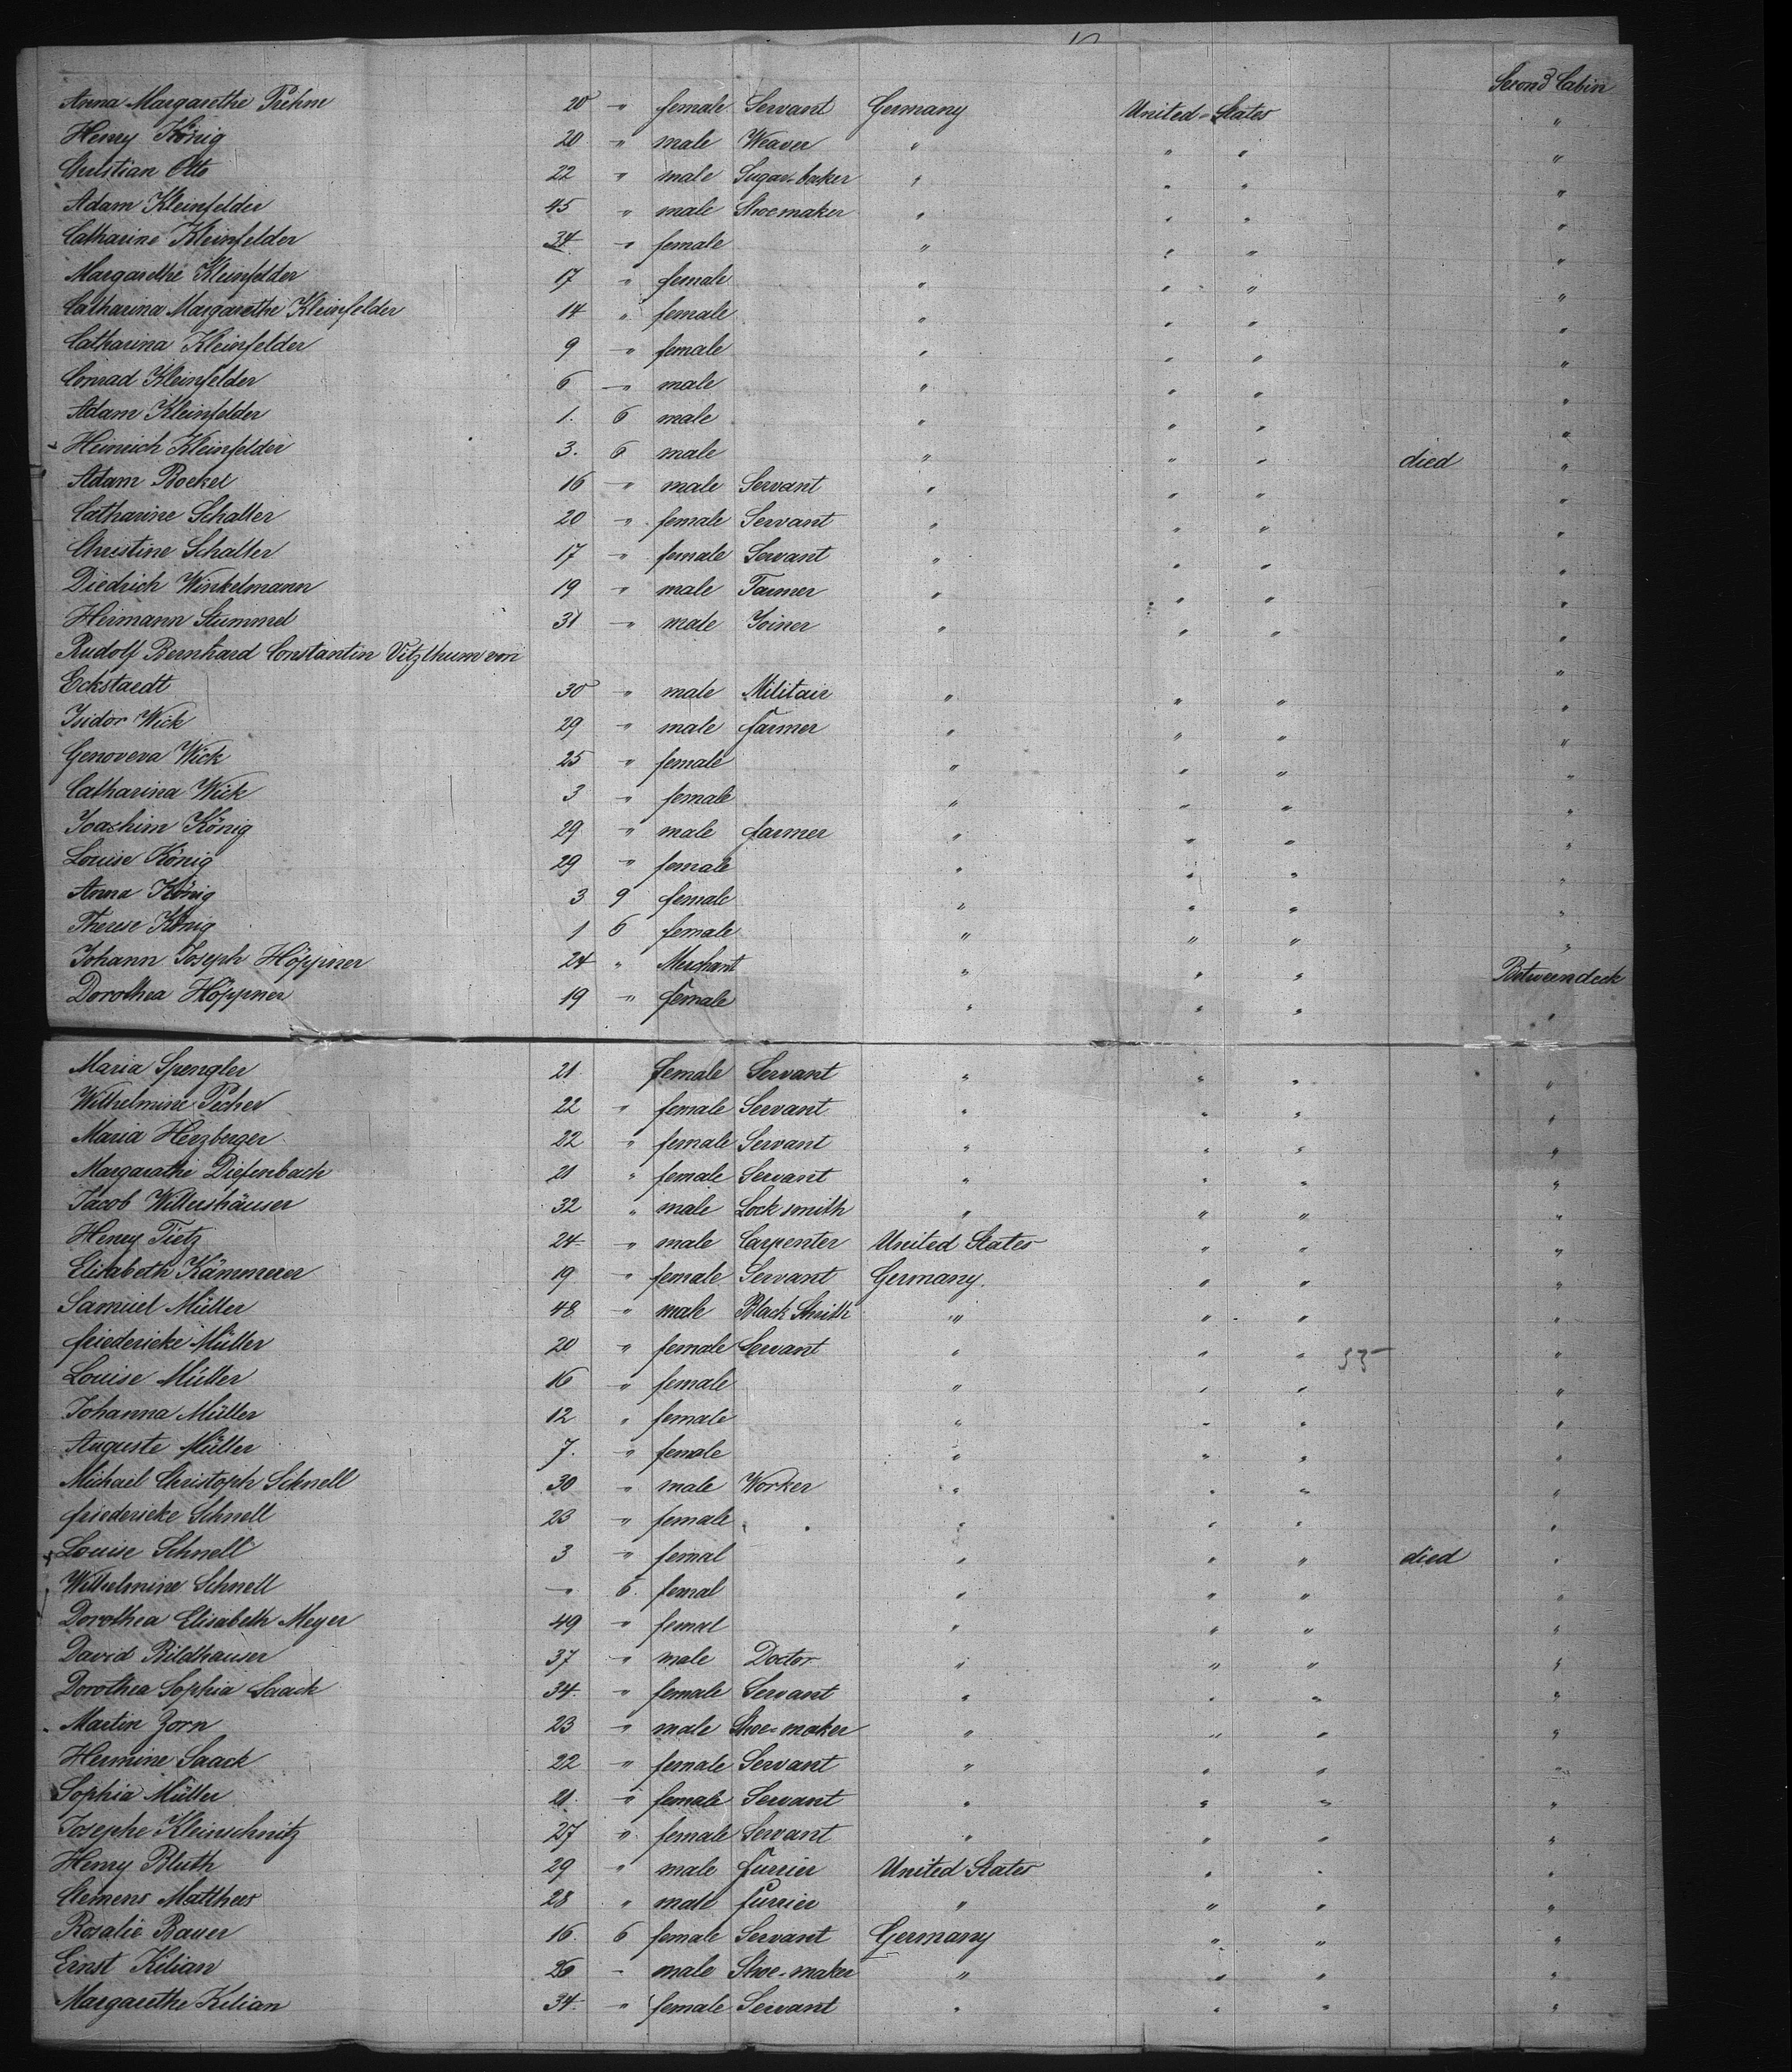 Second Cabin
Anna Margarethe Prehm 20 " female Servant Germany United States "
Henry König 20 " male Weaver " " " "
Christian Otto 22 " male Sugar-baker " " " "
Adam Kleinfelder 45 " male Shoemaker " " " "
Catharine Kleinfelder 34 " female " " " "
Margarethe Kleinfelder 17 " female " " " "
Catharina Margarethe Kleinfelder 14 " female " " " "
Catharina Kleinfelder 9 " female " " " "
Conrad Kleinfelder 6 " male " " " "
Adam Kleinfelder 1. 6 male " " " "
Heinrich Kleinfelder 3. 6 male " " " died "
Adam Boekel 16 " male Servant " " " "
Catharine Schalter 20 " female Servant " " " "
Christine Schalter 17 " female Servant " " " "
Diedrich Winkelmann 19 " male Farmer " " " "
Hermann Stummel 31 " male Joiner " " " "
Rudolf Bernhard Constantin Vitzthum von "
Eckstaedt 30 " male Militair " " " "
Isidor Wick 29 " male farmer " " " "
Genoveva Wick 25 " female " " " "
Catharina Wick 3 " female " " " "
Joachim König 29 " male farmer " " " "
Louise König 29 " female " " " "
Anna König 3 9 female " " " "
Therese König 1 6 female " " " "
Johann Joseph Höppner 24 " Merchant " " " Betweendeck
Dorothea Höppner 19 " female " " " "
Maria Spengler 21 female Servant " " " "
Wilhelmine Pecher 22 " female Servant " " " "
Maria Herzberger 22 " female Servant " " " "
Margarathe Diefenbach 21 " female Servant " " " "
Jacob Willershäuser 32 " male Lock smith " " " "
Henry Tietz 24 " male Carpenter United States " " "
Elisabeth Kämmerer 19 " female Servant Germany. " " "
Samuel Müller 48 " male Black Smith " " " "
friedericke Müller 20 " female Servant " " " "
Louise Müller 16 " female " " " "
Johanna Müller 12 " female " " " "
Auguste Müller 7. " female " " " "
Michael Christoph Schnell 30 " male Worker " " " "
friedericke Schnell 23 " female " " " "
Louise Schnell 3 " femal " " " died "
Wilhelmine Schnell " 6. femal " " " "
Dorothea Elisabeth Meyer 49 " femal " " " "
David Bildhauser 37 " male Doctor " " " "
Dorothea Sophia Saack 34. " female Servant " " " "
Martin Zorn 23 " male Shoe-maker " " " "
Hermine Saack 22 " female Servant " " " "
Sophia Müller 21. " female Servant " " " "
Josephe Kleinschnitz 27 " female Servant " " " "
Henry Bluth 29 " male furrier United States " " "
Clemens Matthees 28 " male furrier " " " "
Rosalie Bauer 16. 6 female Servant Germany " " "
Ernst Kilian 26 - male Shoe-maker " " " "
Margarethe Kilian 34. " female Servant " " " "